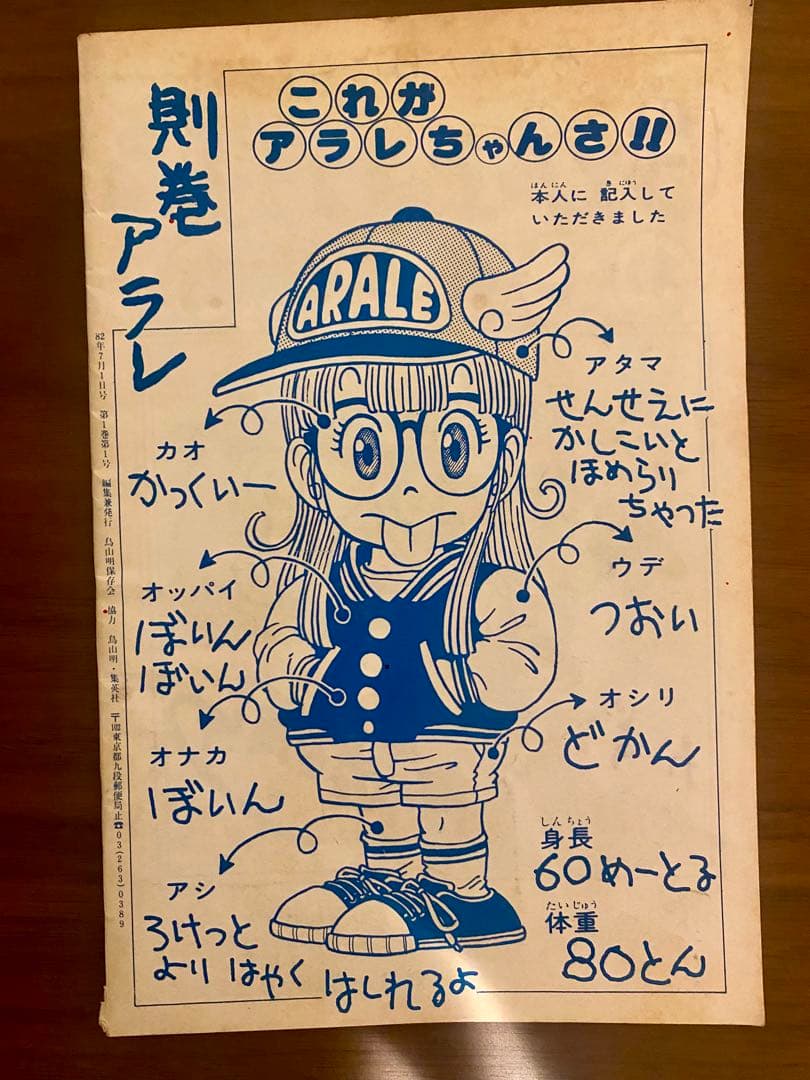 則巻
アラレ
これが
アラレちゃんさ!!
ほんにん きにゅう
本人に 記入して
いただきました
ARALE
アタマ
せんせえに
かしこいと
ほめらり
ちゃった
カオ
かっくいー
ウデ
つおい
オッパイ
ぼいん
ぼいん
オシリ
どかん
オナカ
ぼいん
しんちょう
身長
60めーとる
たいじゅう
体重
80とん
アシ
ろけっと
より はやく はしれるよ
82年7月1日号 第1巻第1号 編集兼発行 鳥山明保存会 協力 鳥山明・集英社 〒102東京都九段郵便局止☎03(263)0389